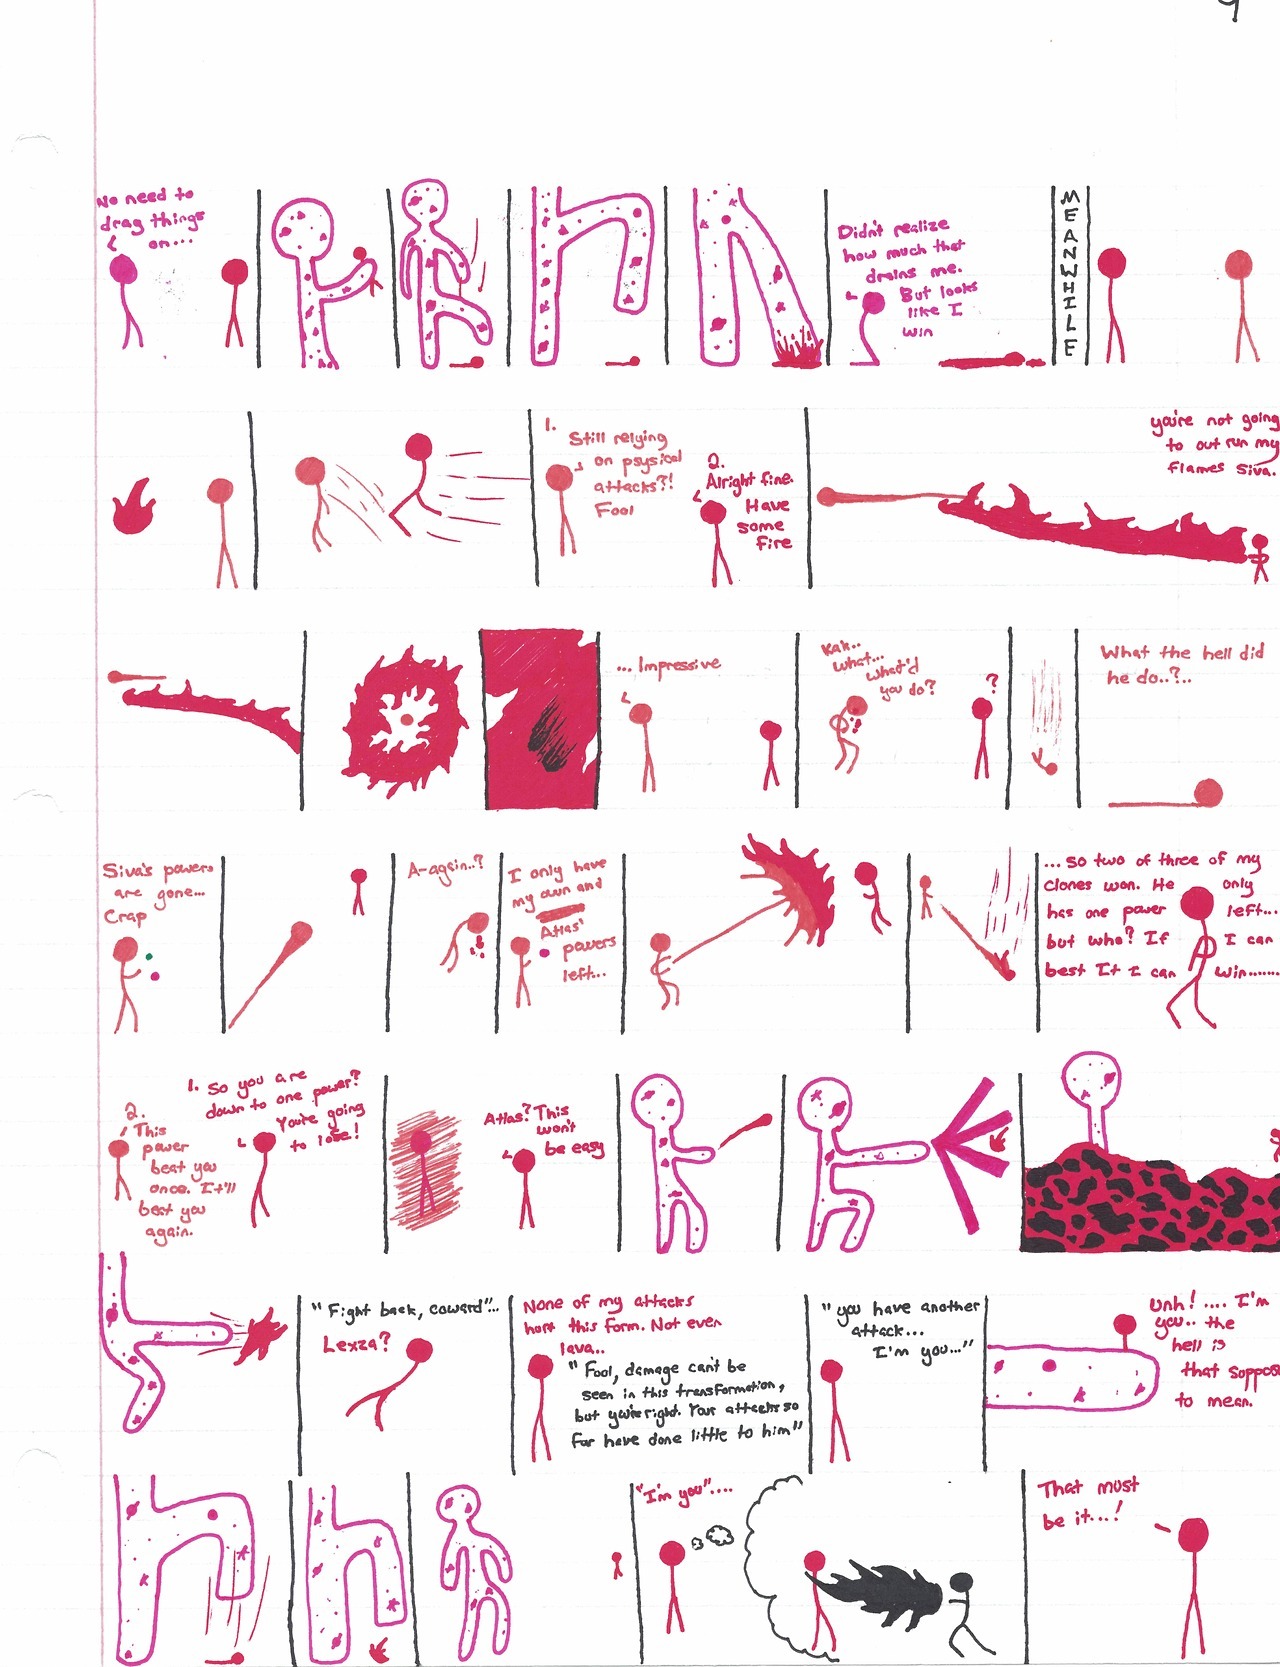 9
No need to
drag things
on...
Didn't realize
how much that
drains me.
But looks
like I
win
MEANWHILE
1.
Still relying
on psysical
attacks?!
Fool
2.
Alright fine.
Have
some
fire
you're not going
to out run my
flames Siva.
... Impressive
Kah..
what...
what'd
you do?
?
What the hell did
he do..?..
Siva's powers
are gone...
Crap
A-again..?
I only have
my own and
Atlas'
powers
left...
...so two of three of my
clones won. He only
has one power left...
but who? If I can
best It I can win.......
1. So you are
down to one power?
You're going
to lose!
2.
This
power
beat you
once. It'll
beat you
again.
Atlas? This
won't
be easy
"Fight back, coward"...
Lexza?
None of my attacks
hurt this form. Not even
lava..
"Fool, damage can't be
seen in this transformation,
but you're right. Your attacks so
far have done little to him"
"you have another
attack...
I'm you..."
Unh! .... I'm
you.. the
hell is
that suppose
to mean.
"I'm you"....
That must
be it...!